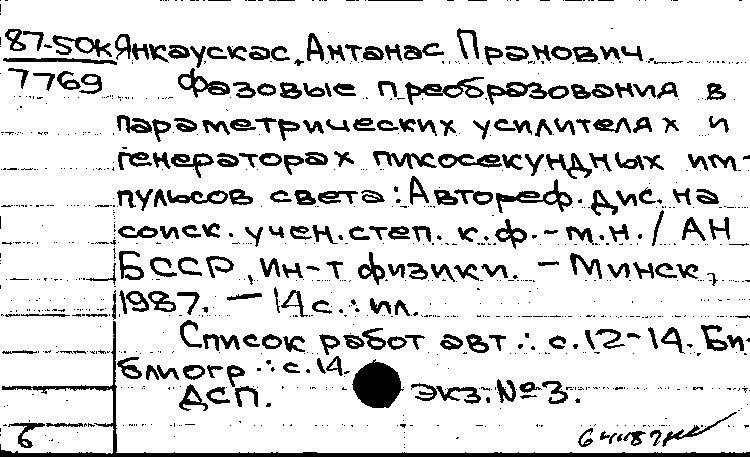 87-50к Янкаускас, Антанас Пранович.
7769 Фазовые преобразования в
параметрических усилителях и
генераторах пикосекундных им-
пульсов света: Автореф. дис. на
соиск. учен. степ. к.ф.-м.н. / АН
БССР, Ин-т физики. - Минск,
1987. - 14 с.: ил.
Список работ авт.: с. 12-14. Би-
блиогр.: с. 14.
ДСП. экз. № 3.
6